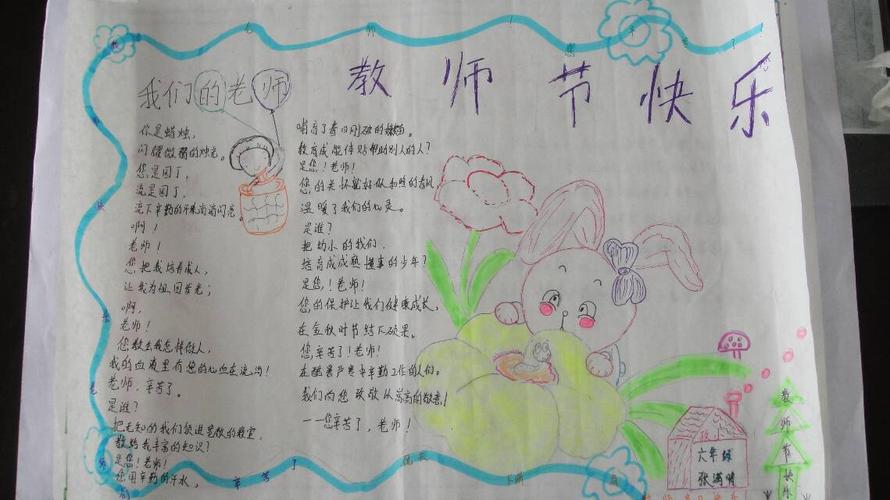 教师节快乐
我们的老师
你是蜡烛，
闪耀微弱的烛光。
您是园丁，
流下辛勤的汗珠尚尚闪光。
啊！
老师！
您把我培养成人，
让我为祖国争光；
啊，
老师！
您教会我怎样做人，
我的血液里有您的心血在流淌！
老师，辛苦了。
是谁？
把无知的我们领进宽敞的教室，
教给我丰富的知识？
是您！老师！
您用辛勤的汗水，
哺育了春日刚破的嫩苗。
教育成能体贴帮助别人的人？
是您！老师！
您的关怀就好似和煦的春风
温暖了我们的心灵。
是谁？
把幼小的我们，
培育成成熟懂事的少年？
是您！老师！
您的保护让我们健康成长，
在金秋时节结下硕果。
您辛苦了！老师！
在酷暑严寒中辛勤工作的人们。
我们向您致敬从崇高的敬意！
——您辛苦了，老师！
六年级
张满倩
教师节快乐
辛苦了